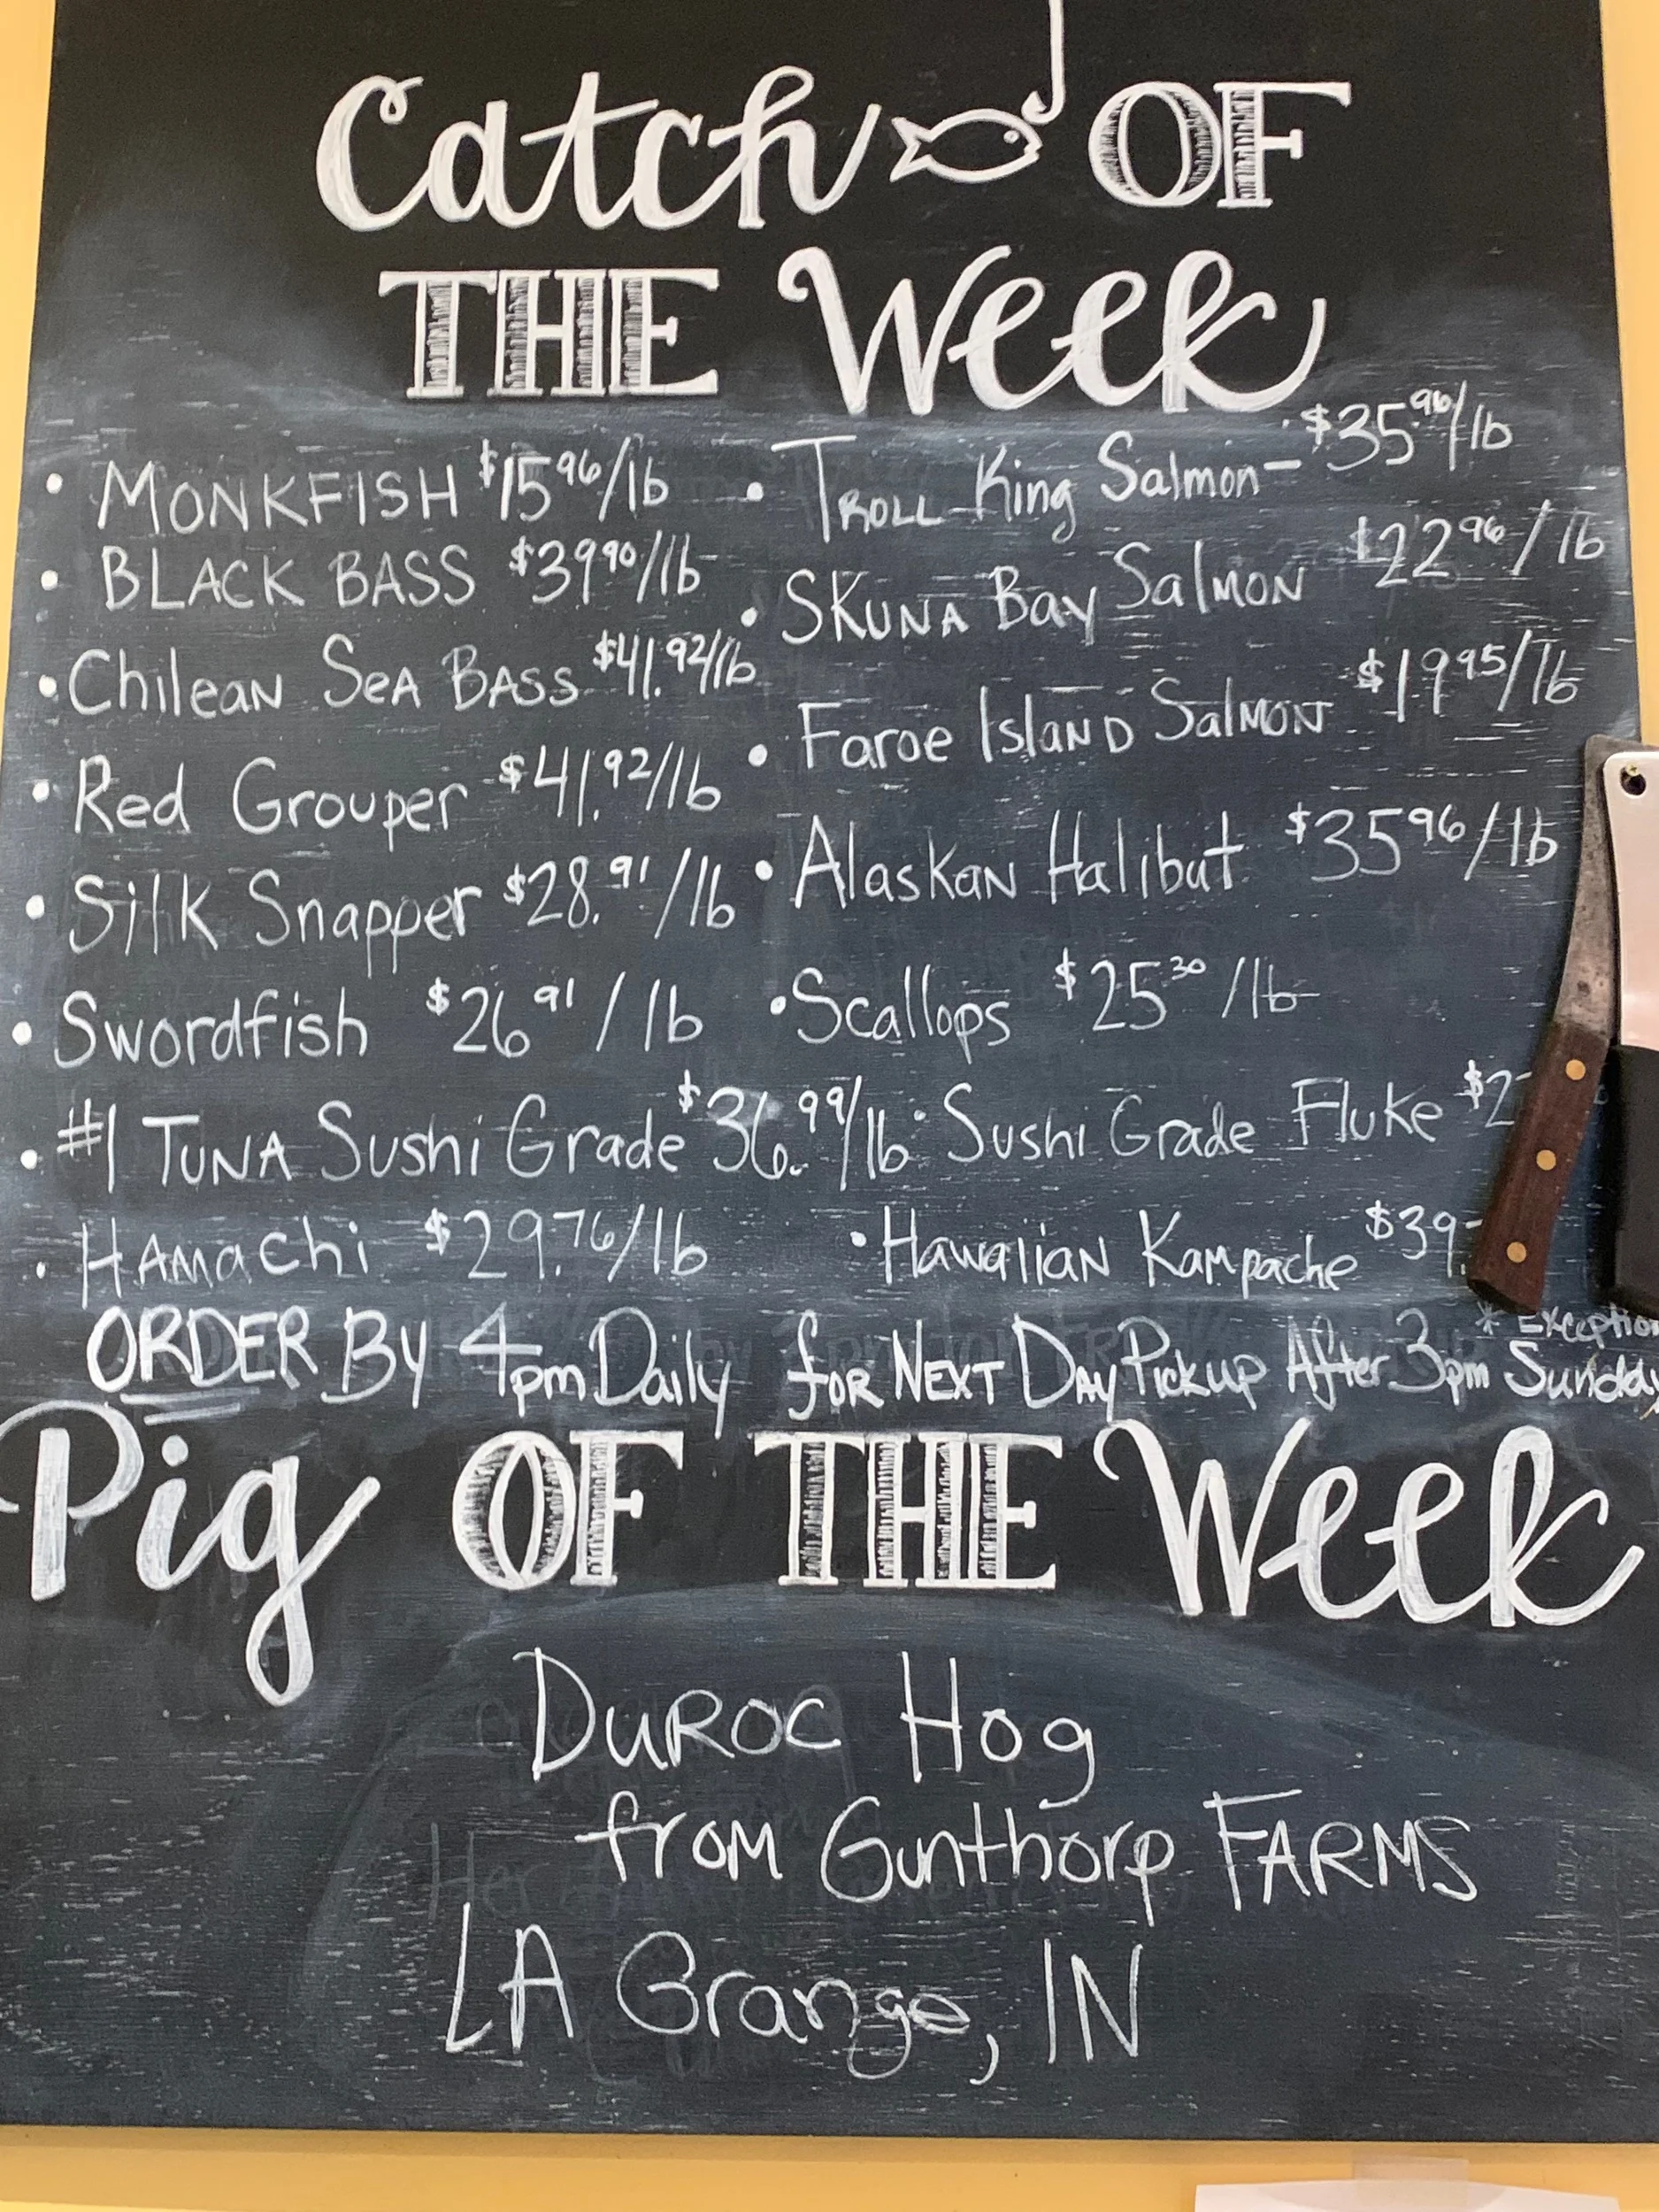 Catch OF
THE Week
• MONKFISH $15.96/lb
• BLACK BASS $39.90/lb
• Chilean Sea Bass $41.92/lb
• Red Grouper $41.92/lb
• Silk Snapper $28.91/lb
• Swordfish $26.91/lb
• #1 Tuna Sushi Grade $36.99/lb
• Hamachi $29.76/lb
• Troll King Salmon - $35.96/lb
• Skuna Bay Salmon $22.96/lb
• Faroe Island Salmon $19.95/lb
• Alaskan Halibut $35.96/lb
• Scallops $25.30/lb
• Sushi Grade Fluke $2
• Hawaiian Kampache $39.
ORDER By 4pm Daily for Next Day Pickup After 3pm * Exception Sunday
Pig OF THE Week
Duroc Hog
from Gunthorp FARMS
LA Grange, IN